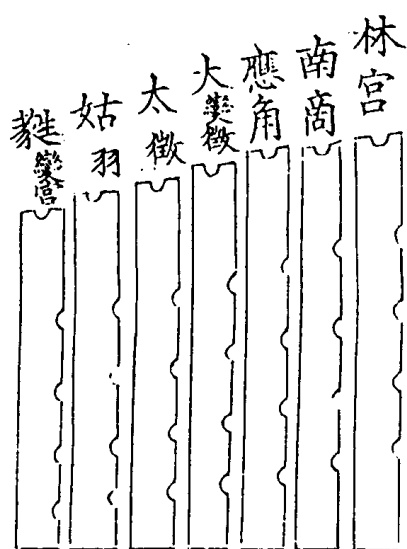 林宫
南商
應角
大變徵
太徵
姑羽
蕤變宫